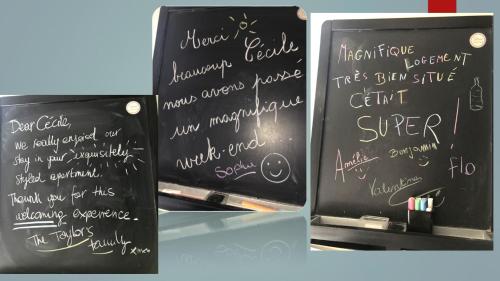 Dear Cécile,
We really enjoyed our
stay in your exquisitely
styled apartment.
Thank you for this
welcoming experience.
The Taylor's
family
Merci Cécile
beaucoup
nous avons passé
un magnifique
week-end
Sophie
MAGNIFIQUE
LOGEMENT
TRÈS BIEN SITUÉ
C'ÉTAIT
SUPER !
Amélie
Benjamin
flo
Valentine